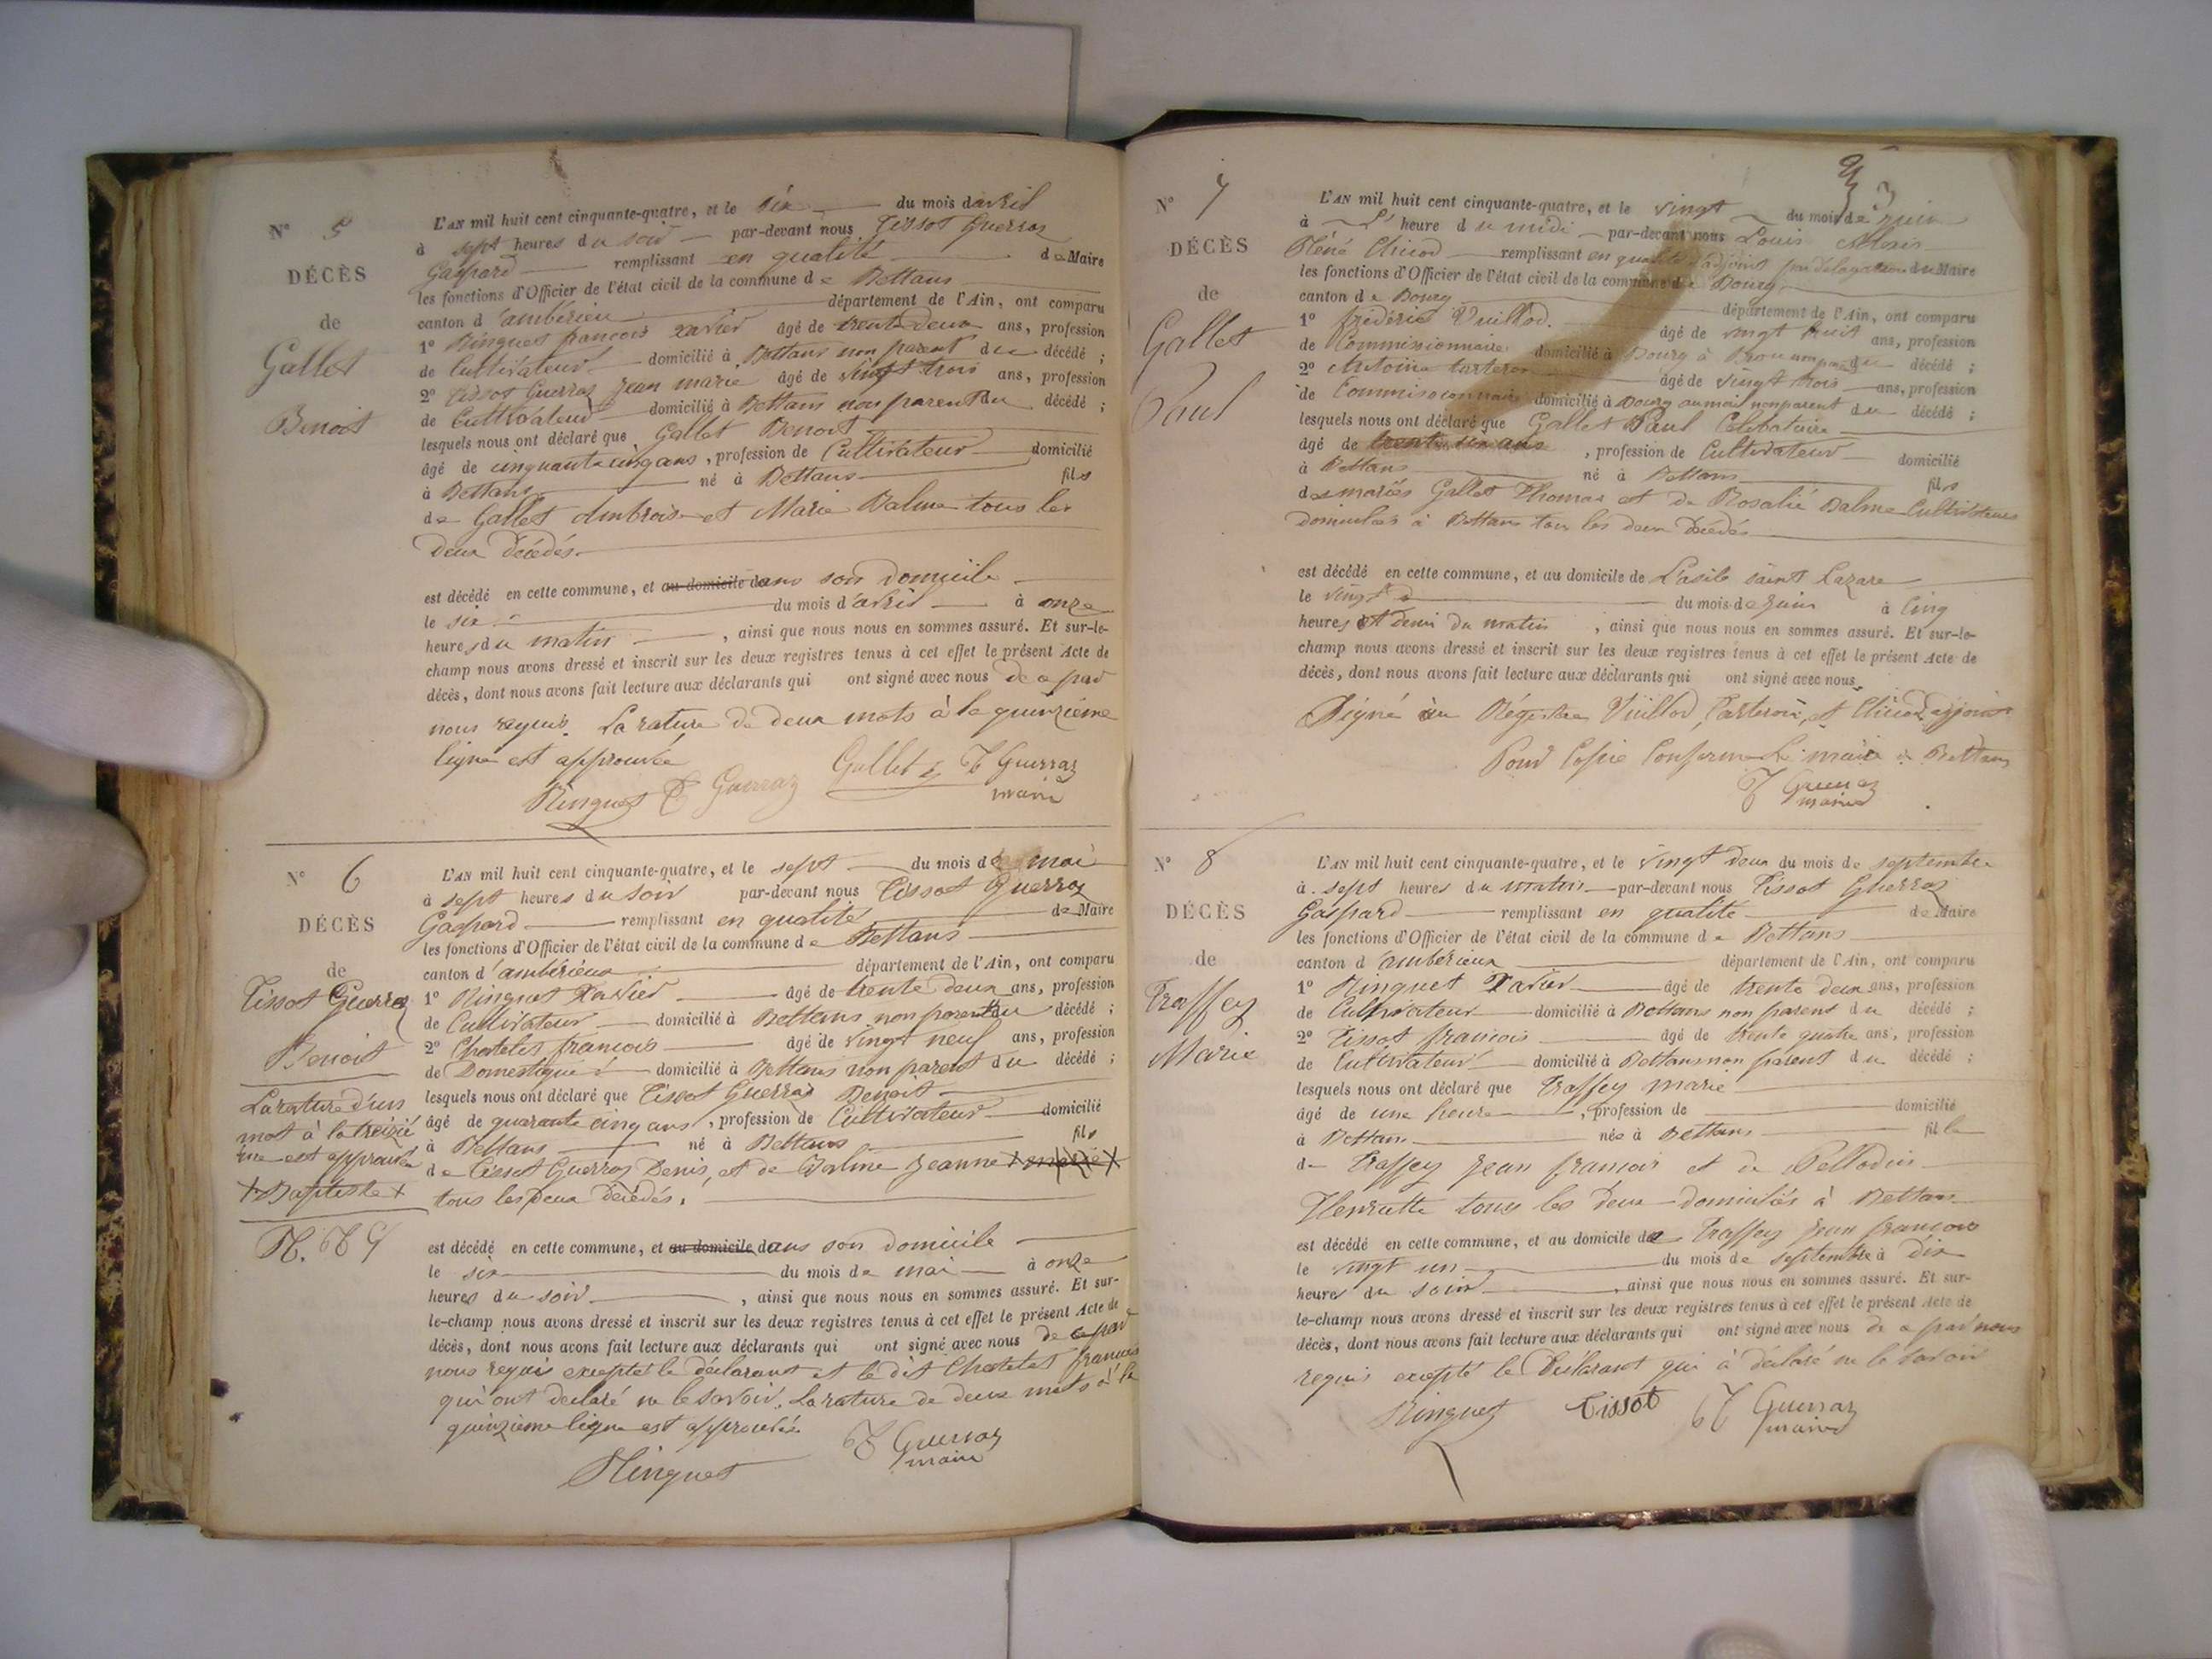 N° 5
DÉCÈS
de
Gallet
Benoit
L'AN mil huit cent cinquante-quatre, et le six du mois d'avril
à sept heures du soir par-devant nous Tissot Guerraz
Gaspard remplissant en qualité de Maire
les fonctions d'Officier de l'état civil de la commune de Bettans
canton d'ambérieu département de l'Ain, ont comparu
1° Ringuet françois xavier âgé de trente deux ans, profession
de Cultivateur domicilié à Bettans non parent du décédé ;
2° Tissot Guerraz jean marie âgé de vingt trois ans, profession
de Cultivateur domicilié à Bettans non parent du décédé ;
lesquels nous ont déclaré que Gallet Benoit
âgé de cinquante cinq ans, profession de Cultivateur domicilié
à Bettans né à Bettans fils
de Gallet Ambroise et Marie Balme tous les
deux décédés
est décédé en cette commune, et au domicile dans son domicile
le six du mois d'avril à onze
heures du matin, ainsi que nous nous en sommes assuré. Et sur-le-
champ nous avons dressé et inscrit sur les deux registres tenus à cet effet le présent Acte de
décès, dont nous avons fait lecture aux déclarants qui ont signé avec nous de ce par
nous requis. La rature de deux mots à la quinzième
ligne est approuvée
Ringuet T Guerraz Gallet T Guerraz
maire
N° 6
DÉCÈS
de
Tissot Guerraz
Benoit
La rature d'un
mot à la treiziè
me est approuvée
+ Baptiste +
L'AN mil huit cent cinquante-quatre, et le sept du mois de mai
à sept heures du soir par-devant nous Tissot Guerraz
Gaspard remplissant en qualité de Maire
les fonctions d'Officier de l'état civil de la commune de Bettans
canton d'ambérieux département de l'Ain, ont comparu
1° Ringuet Xavier âgé de trente deux ans, profession
de Cultivateur domicilié à Bettans non parent du décédé ;
2° Chatelet françois âgé de vingt neuf ans, profession
de Domestique domicilié à Bettans non parent du décédé ;
lesquels nous ont déclaré que Tissot Guerraz Benoit
âgé de quarante cinq ans, profession de Cultivateur domicilié
à Bettans né à Bettans fils
de Tissot Guerraz Denis, et de Balme Jeanne + marie +
tous les deux décédés.
est décédé en cette commune, et au domicile dans son domicile
le six du mois de mai à onze
heures du soir, ainsi que nous nous en sommes assuré. Et sur-
le-champ nous avons dressé et inscrit sur les deux registres tenus à cet effet le présent Acte de
décès, dont nous avons fait lecture aux déclarants qui ont signé avec nous de ce par
nous requis excepté le déclarant et le dit Chatelet françois
qui ont déclaré ne le savoir. La rature de deux mots à la
quinzième ligne est approuvée
Ringuet T Guerraz
maire
N° 7
DÉCÈS
de
Gallet
Paul
L'AN mil huit cent cinquante-quatre, et le vingt du mois de juin
à heure du midi par-devant nous Louis Alexis
Réné Chicod remplissant en qualité d'adjoint par délégation du Maire
les fonctions d'Officier de l'état civil de la commune de Bourg
canton de Bourg département de l'Ain, ont comparu
1° frédéric Vuillod. âgé de vingt huit ans, profession
de Commissionnaire domicilié à Bourg à Brou non parent du décédé ;
2° Antoine âgé de vingt trois ans, profession
de Commissionnaire domicilié à Bourg non parent du décédé ;
lesquels nous ont déclaré que Gallet Paul Célibataire
âgé de trente six ans, profession de Cultivateur domicilié
à Bettans né à Bettans fils
des mariés Gallet Thomas et de Rosalié Balme Cultivateurs
domiciliés à Bettans tous les deux décédés
est décédé en cette commune, et au domicile de L'asile saint Lazare
le vingt du mois de juin à Cinq
heures et demi du matin, ainsi que nous nous en sommes assuré. Et sur-le-
champ nous avons dressé et inscrit sur les deux registres tenus à cet effet le présent Acte de
décès, dont nous avons fait lecture aux déclarants qui ont signé avec nous.
Signé au Régistre Vuillod, et Chicod adjoint
Pour Copie Conforme Le maire de Bettans
T Guerraz
maire
N° 8
DÉCÈS
de
Traffey
Marie
L'AN mil huit cent cinquante-quatre, et le vingt deux du mois de septembre
à sept heures du matin par-devant nous Tissot Guerraz
Gaspard remplissant en qualité de Maire
les fonctions d'Officier de l'état civil de la commune de Bettans
canton d'ambérieux département de l'Ain, ont comparu
1° Ringuet Xavier âgé de trente deux ans, profession
de Cultivateur domicilié à Bettans non parent du décédé ;
2° Tissot françois âgé de trente quatre ans, profession
de Cultivateur domicilié à Bettans non parent du décédé ;
lesquels nous ont déclaré que Traffey marie
âgé de une heure, profession de domicilié
à Bettans née à Bettans fille
de Traffey jean françois et de Pellodin
Henriette tous les deux domiciliés à Bettans
est décédé en cette commune, et au domicile de Traffey jean françois
le vingt un du mois de septembre à dix
heures du soir, ainsi que nous nous en sommes assuré. Et sur-
le-champ nous avons dressé et inscrit sur les deux registres tenus à cet effet le présent Acte de
décès, dont nous avons fait lecture aux déclarants qui ont signé avec nous de ce par nous
requis excepté le Déclarant qui à déclaré ne le savoir
Ringuet Tissot T Guerraz
maire